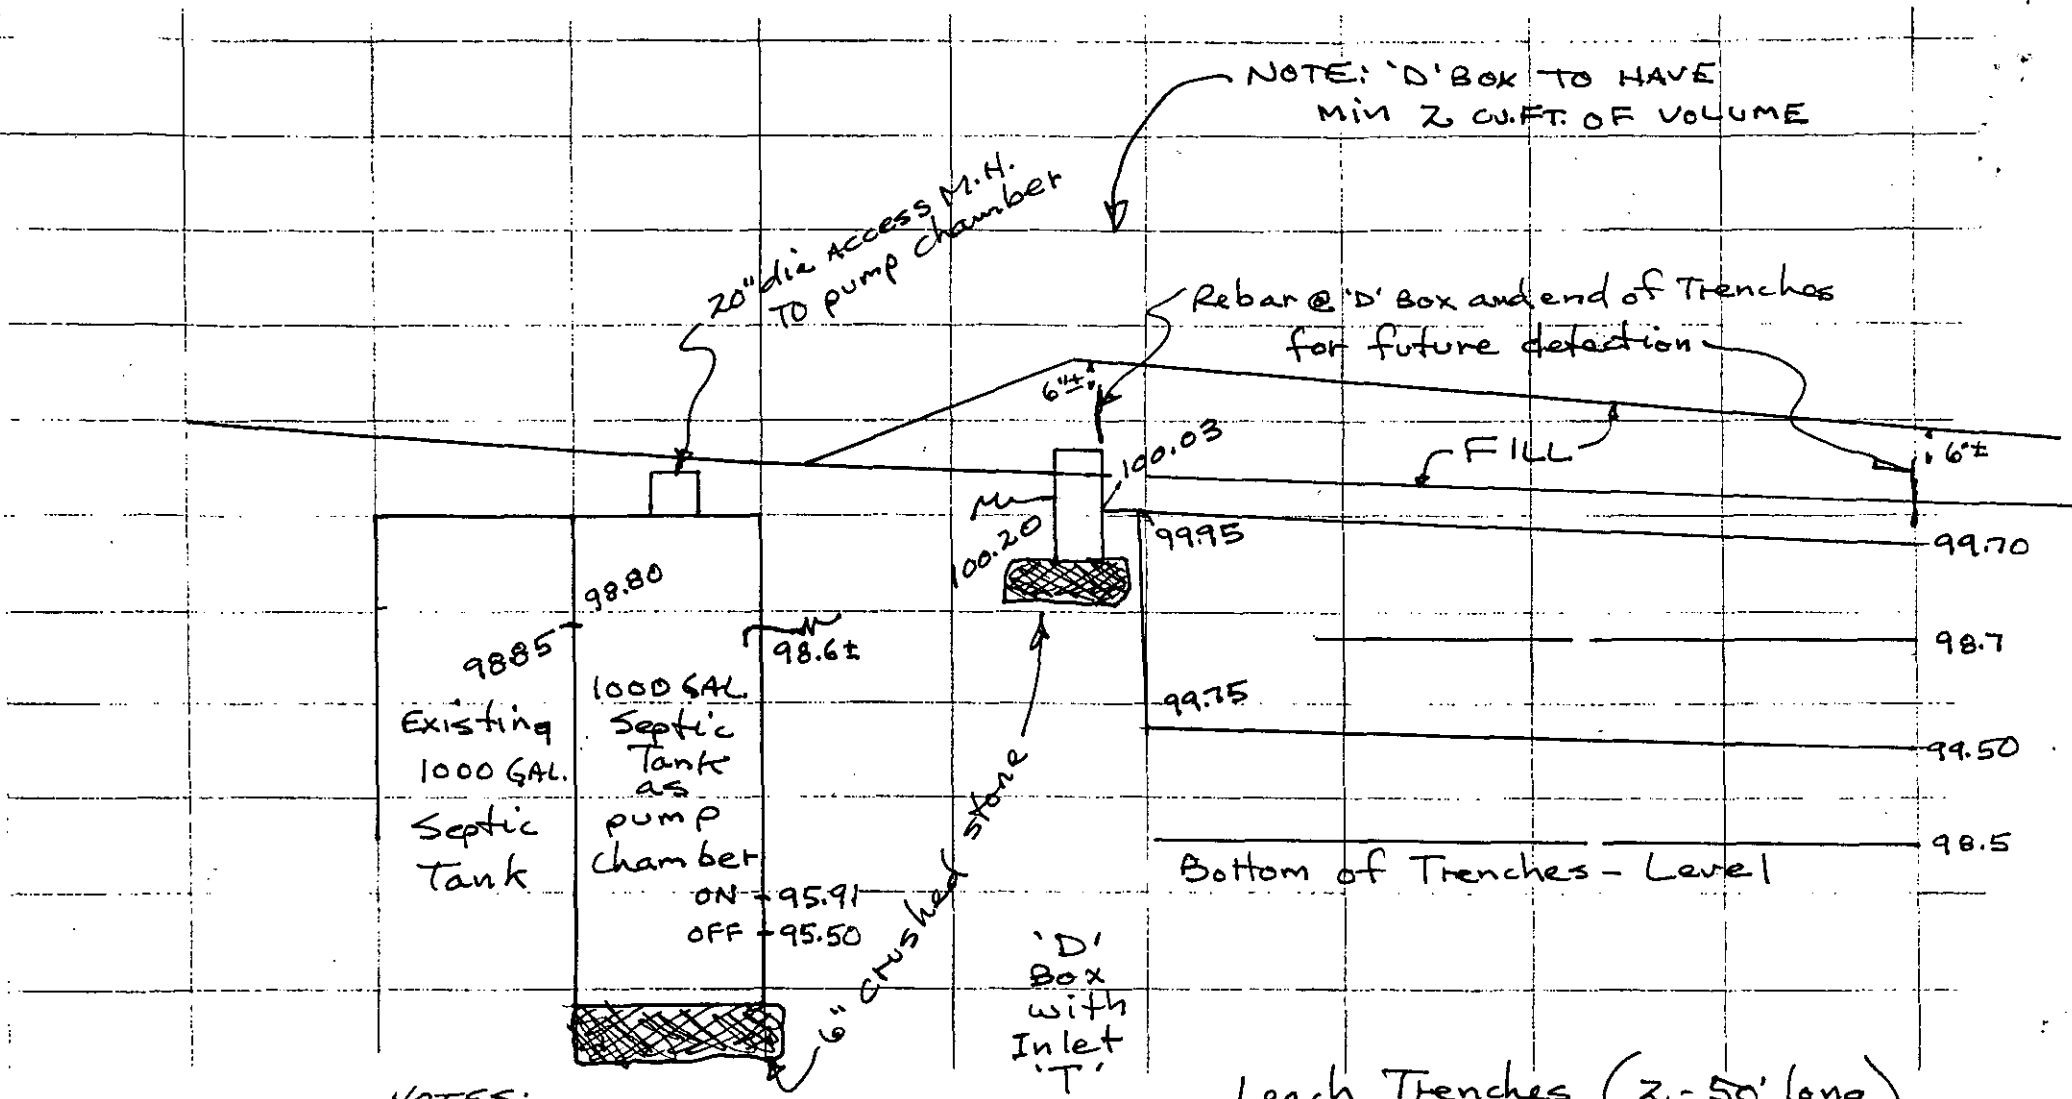 NOTE: 'D' BOX TO HAVE
MIN 2 CU.FT. OF VOLUME
20" dia ACCESS M.H.
TO pump chamber
Rebar @ 'D' Box and end of Trenches
for future detection
6"±
FILL
6"±
100.03
100.20
99.95
99.70
98.80
98.85
98.6±
98.7
99.75
99.50
Existing
1000 GAL.
Septic
Tank
1000 GAL.
Septic
Tank
as
pump
chamber
ON 95.91
OFF 95.50
6" crushed stone
98.5
Bottom of Trenches - Level
'D'
Box
with
Inlet
'T'
NOTES:
Leach Trenches (2 - 50' long)